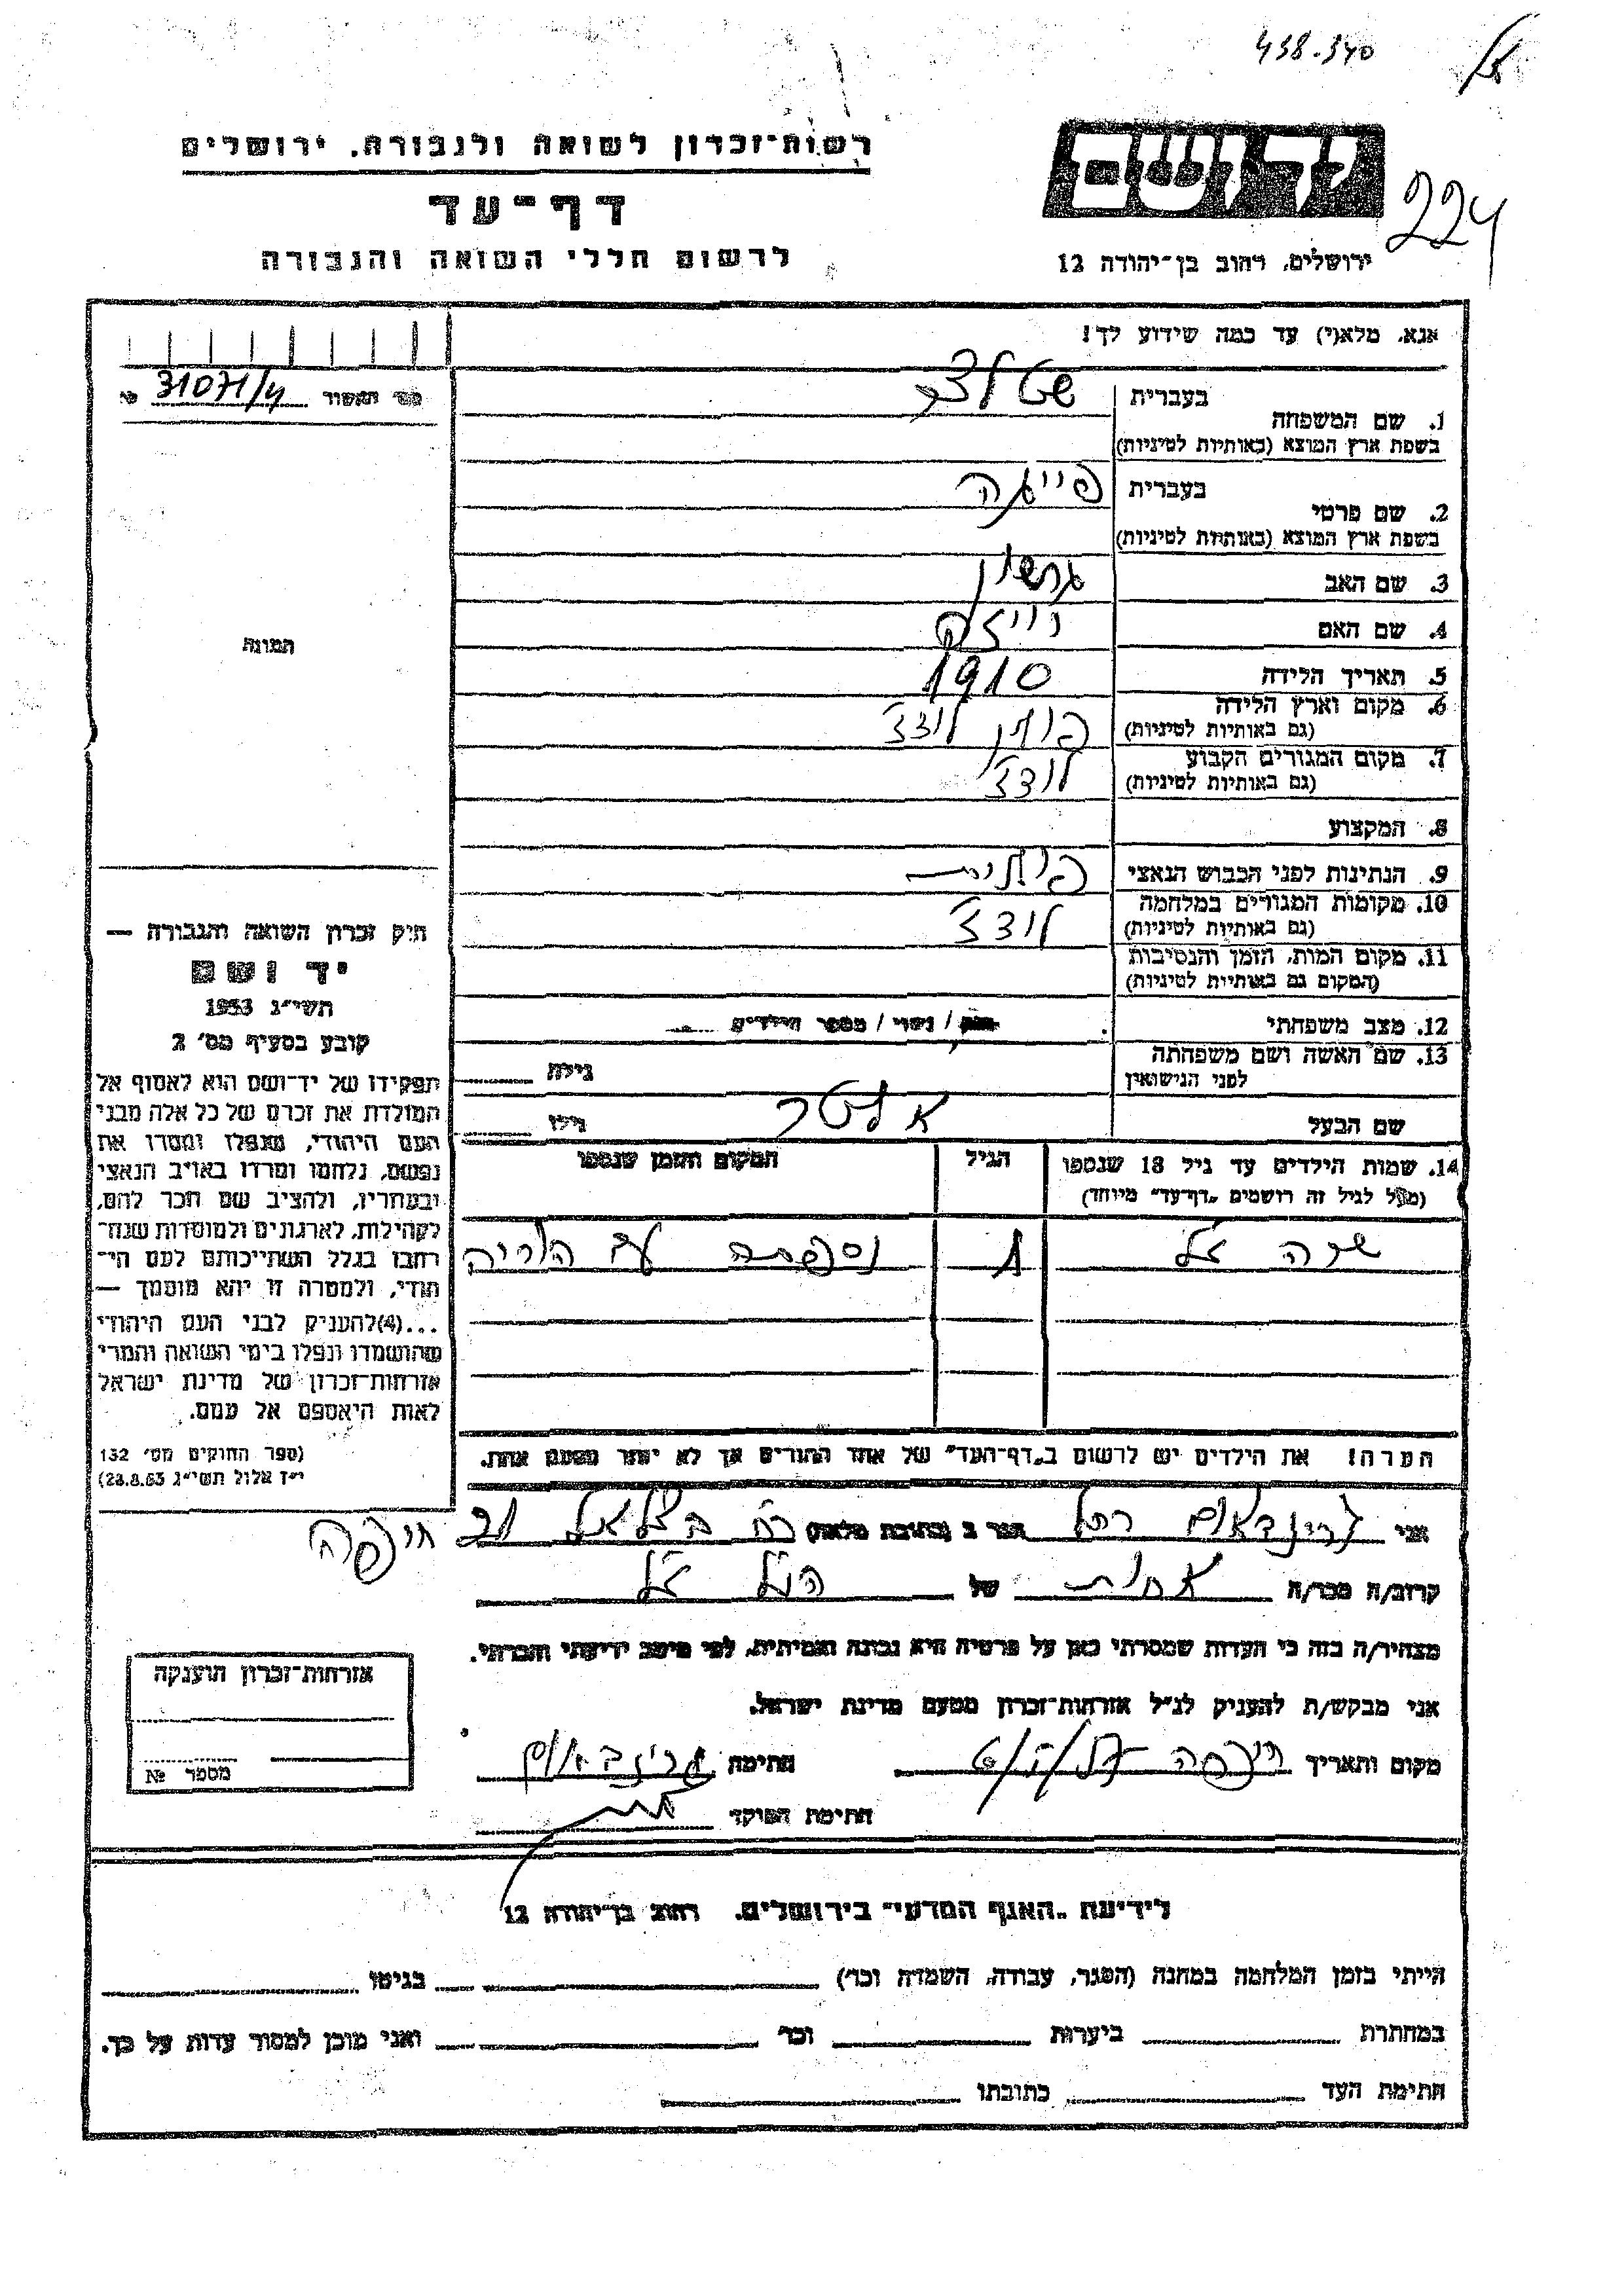 438.340
רשות־זכרון לשואה ולגבורה, ירושלים
דף־עד
לרשום חללי השואה והגבורה
יד ושם
224
ירושלים, רחוב בן־יהודה 12
אנא, מלא(י) עד כמה שידוע לך!
מס׳ האשור 31071/4
1. שם המשפחה
בעברית
בשפת ארץ המוצא (באותיות לטיניות)
2. שם פרטי
בעברית פייגה
בשפת ארץ המוצא (באותיות לטיניות)
3. שם האב גרשון
4. שם האם
5. תאריך הלידה 1910
6. מקום וארץ הלידה פולין לודז׳
(גם באותיות לטיניות)
7. מקום המגורים הקבוע לודז׳
(גם באותיות לטיניות)
8. המקצוע
9. הנתינות לפני הכבוש הנאצי פולנית
10. מקומות המגורים במלחמה לודז׳
(גם באותיות לטיניות)
11. מקום המות, הזמן והנסיבות
(המקום גם באותיות לטיניות)
12. מצב משפחתי רווק / נשוי / מספר הילדים
13. שם האשה ושם משפחתה
לפני הנישואין
גילה
שם הבעל אלטר גילו
14. שמות הילדים עד גיל 18 שנספו
(מעל לגיל זה רושמים „דף־עד״ מיוחד)
הגיל
המקום והזמן שנספו
שרה ז״ל 1 נספתה עם הוריה
הערה! את הילדים יש לרשום ב„דף־העד״ של אחד ההורים אך לא יותר מפעם אחת.
תמונה
חוק זכרון השואה והגבורה —
יד ושם
תשי״ג 1953
קובע בסעיף מס׳ 2
תפקידו של יד־ושם הוא לאסוף אל
המולדת את זכרם של כל אלה מבני
העם היהודי, שנפלו ומסרו את
נפשם, נלחמו ומרדו באויב הנאצי
ובעוזריו, ולהציב שם וזכר להם,
לקהילות, לארגונים ולמוסדות שנח־
רבו בגלל השתייכותם לעם הי־
הודי, ולמטרה זו יהא מוסמך —
...(4)להעניק לבני העם היהודי
שהושמדו ונפלו בימי השואה והמרי
אזרחות־זכרון של מדינת ישראל
לאות היאספם אל עמם.
(ספר החוקים מס׳ 132
י״ז אלול תשי״ג 28.8.53)
אני גרינבאום רחל הגר ב (כתובת מלאה) רח בצלאל 21 חיפה
קרוב/ה מכר/ה אחות של הנ״ל ז״ל
מצהיר/ה בזה כי העדות שמסרתי כאן על פרטיה היא נכונה ואמיתית, לפי מיטב ידיעתי והכרתי.
אני מבקש/ת להעניק לנ״ל אזרחות־זכרון מטעם מדינת ישראל.
מקום ותאריך חיפה חתימה גרינבאום
חתימת הפוקד
אזרחות־זכרון הוענקה
מספר №
לידיעת „האגף המדעי״ בירושלים, רחוב בן־יהודה 12
הייתי בזמן המלחמה במחנה (הסגר, עבודה, השמדה וכו׳) בגיטו
במחתרת ביערות וכו׳ ואני מוכן למסור עדות על כך.
חתימת העד כתובתו